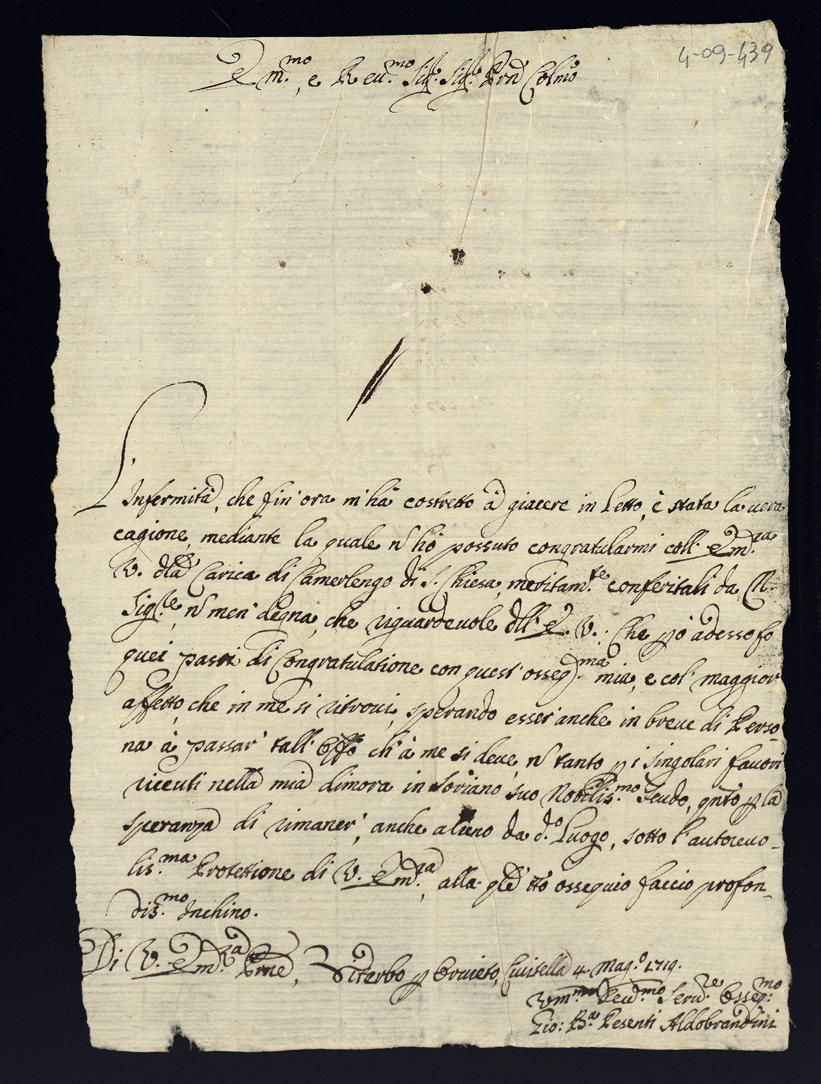 4-09-439
Em.mo, e Reu.mo Sig.r Sig.r Prñ Colmo
L'Infermità, che fin'ora m'hà costretto à giacere in Letto, è stata la uera
cagione, mediante la quale ñ hò possuto congratularmi coll' Em.za
V. dlla Carica di Camerlengo di S. Chiesa, meritam.te conferitali da N.
Sig.re, ñ men' degna, che riguardeuole dll' E. V. Che p̃ò adesso fo
quei passi di Congratulatione con quest' osseq.ma mia, e col' maggior
affetto, che in me si ritroui, sperando esser' anche in breue di Perso-
na à passar' tall' Offõ ch' à me si deue, ñ tanto p̃ i singolari fauori
riceuti nella mia dimora in Soriano, suo Nobilis.mo Feudo, qñto p̃ la
speranza di rimaner', anche alieno da d.o Luogo, sotto l'autoreuo-
lis.ma Protettione di V. Em.za, alla qle ttõ ossequio faccio profon-
dis.mo Inchino.
Di V. Em.za Prñe, Viterbo p̃ Oruieto, Ciuitella 4. Mag.o 1719.
Vm.mo Deu.mo Seru.re Osseq.mo
Gio: B.a Pesenti Aldobrandini